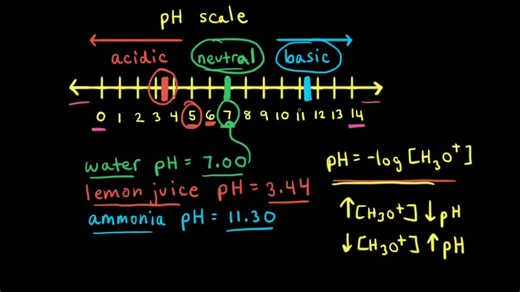 pH scale
acidic neutral basic
0 1 2 3 4 5 6 7 8 9 10 11 12 13 14
water pH = 7.00
lemon juice pH = 3.44
ammonia pH = 11.30
pH = -log [H₃O⁺]
↑[H₃O⁺] ↓pH
↓[H₃O⁺] ↑pH